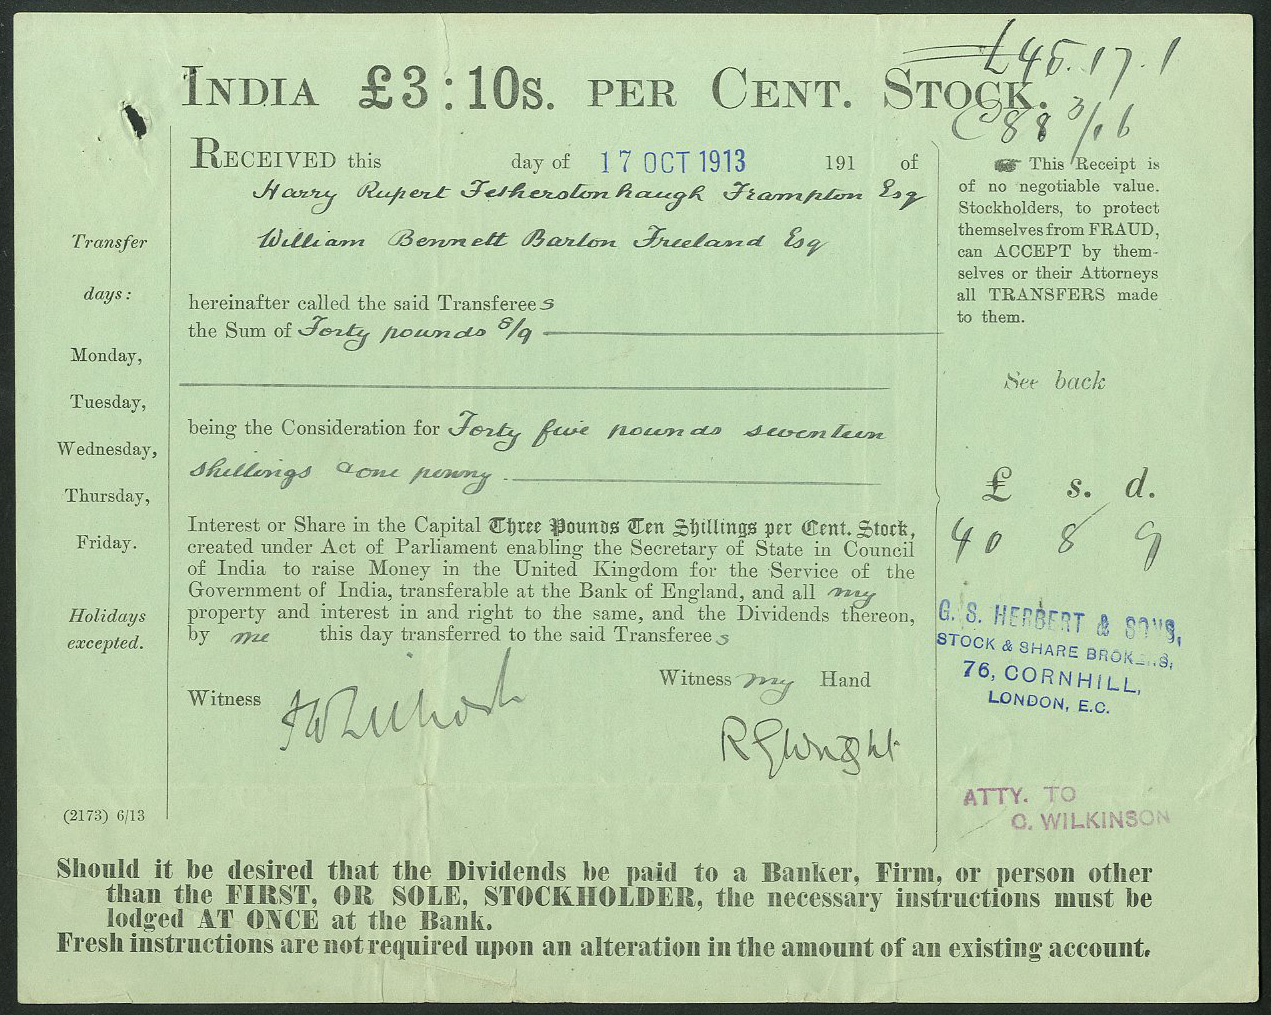 £45.17.1
INDIA £3:10s. PER CENT. STOCK.
88 3/16
RECEIVED this day of 17 OCT 1913 191 of
Harry Rupert Fetherstonhaugh Frampton Esq
William Bennett Barton Freeland Esq
hereinafter called the said Transferees
the Sum of Forty pounds 8/9
being the Consideration for Forty five pounds seventeen
shillings & one penny
Interest or Share in the Capital Three Pounds Ten Shillings per Cent. Stock,
created under Act of Parliament enabling the Secretary of State in Council
of India to raise Money in the United Kingdom for the Service of the
Government of India, transferable at the Bank of England, and all my
property and interest in and right to the same, and the Dividends thereon,
by me this day transferred to the said Transferees
Witness my Hand
Witness
R G Wright
Transfer
days:
Monday,
Tuesday,
Wednesday,
Thursday,
Friday.
Holidays
excepted.
(2173) 6/13
This Receipt is
of no negotiable value.
Stockholders, to protect
themselves from FRAUD,
can ACCEPT by them-
selves or their Attorneys
all TRANSFERS made
to them.
See back
£ s. d.
40 8 9
G. S. HERBERT & SONS,
STOCK & SHARE BROKERS,
76, CORNHILL,
LONDON, E.C.
ATTY. TO
C. WILKINSON
Should it be desired that the Dividends be paid to a Banker, Firm, or person other
than the FIRST, OR SOLE, STOCKHOLDER, the necessary instructions must be
lodged AT ONCE at the Bank.
Fresh instructions are not required upon an alteration in the amount of an existing account.